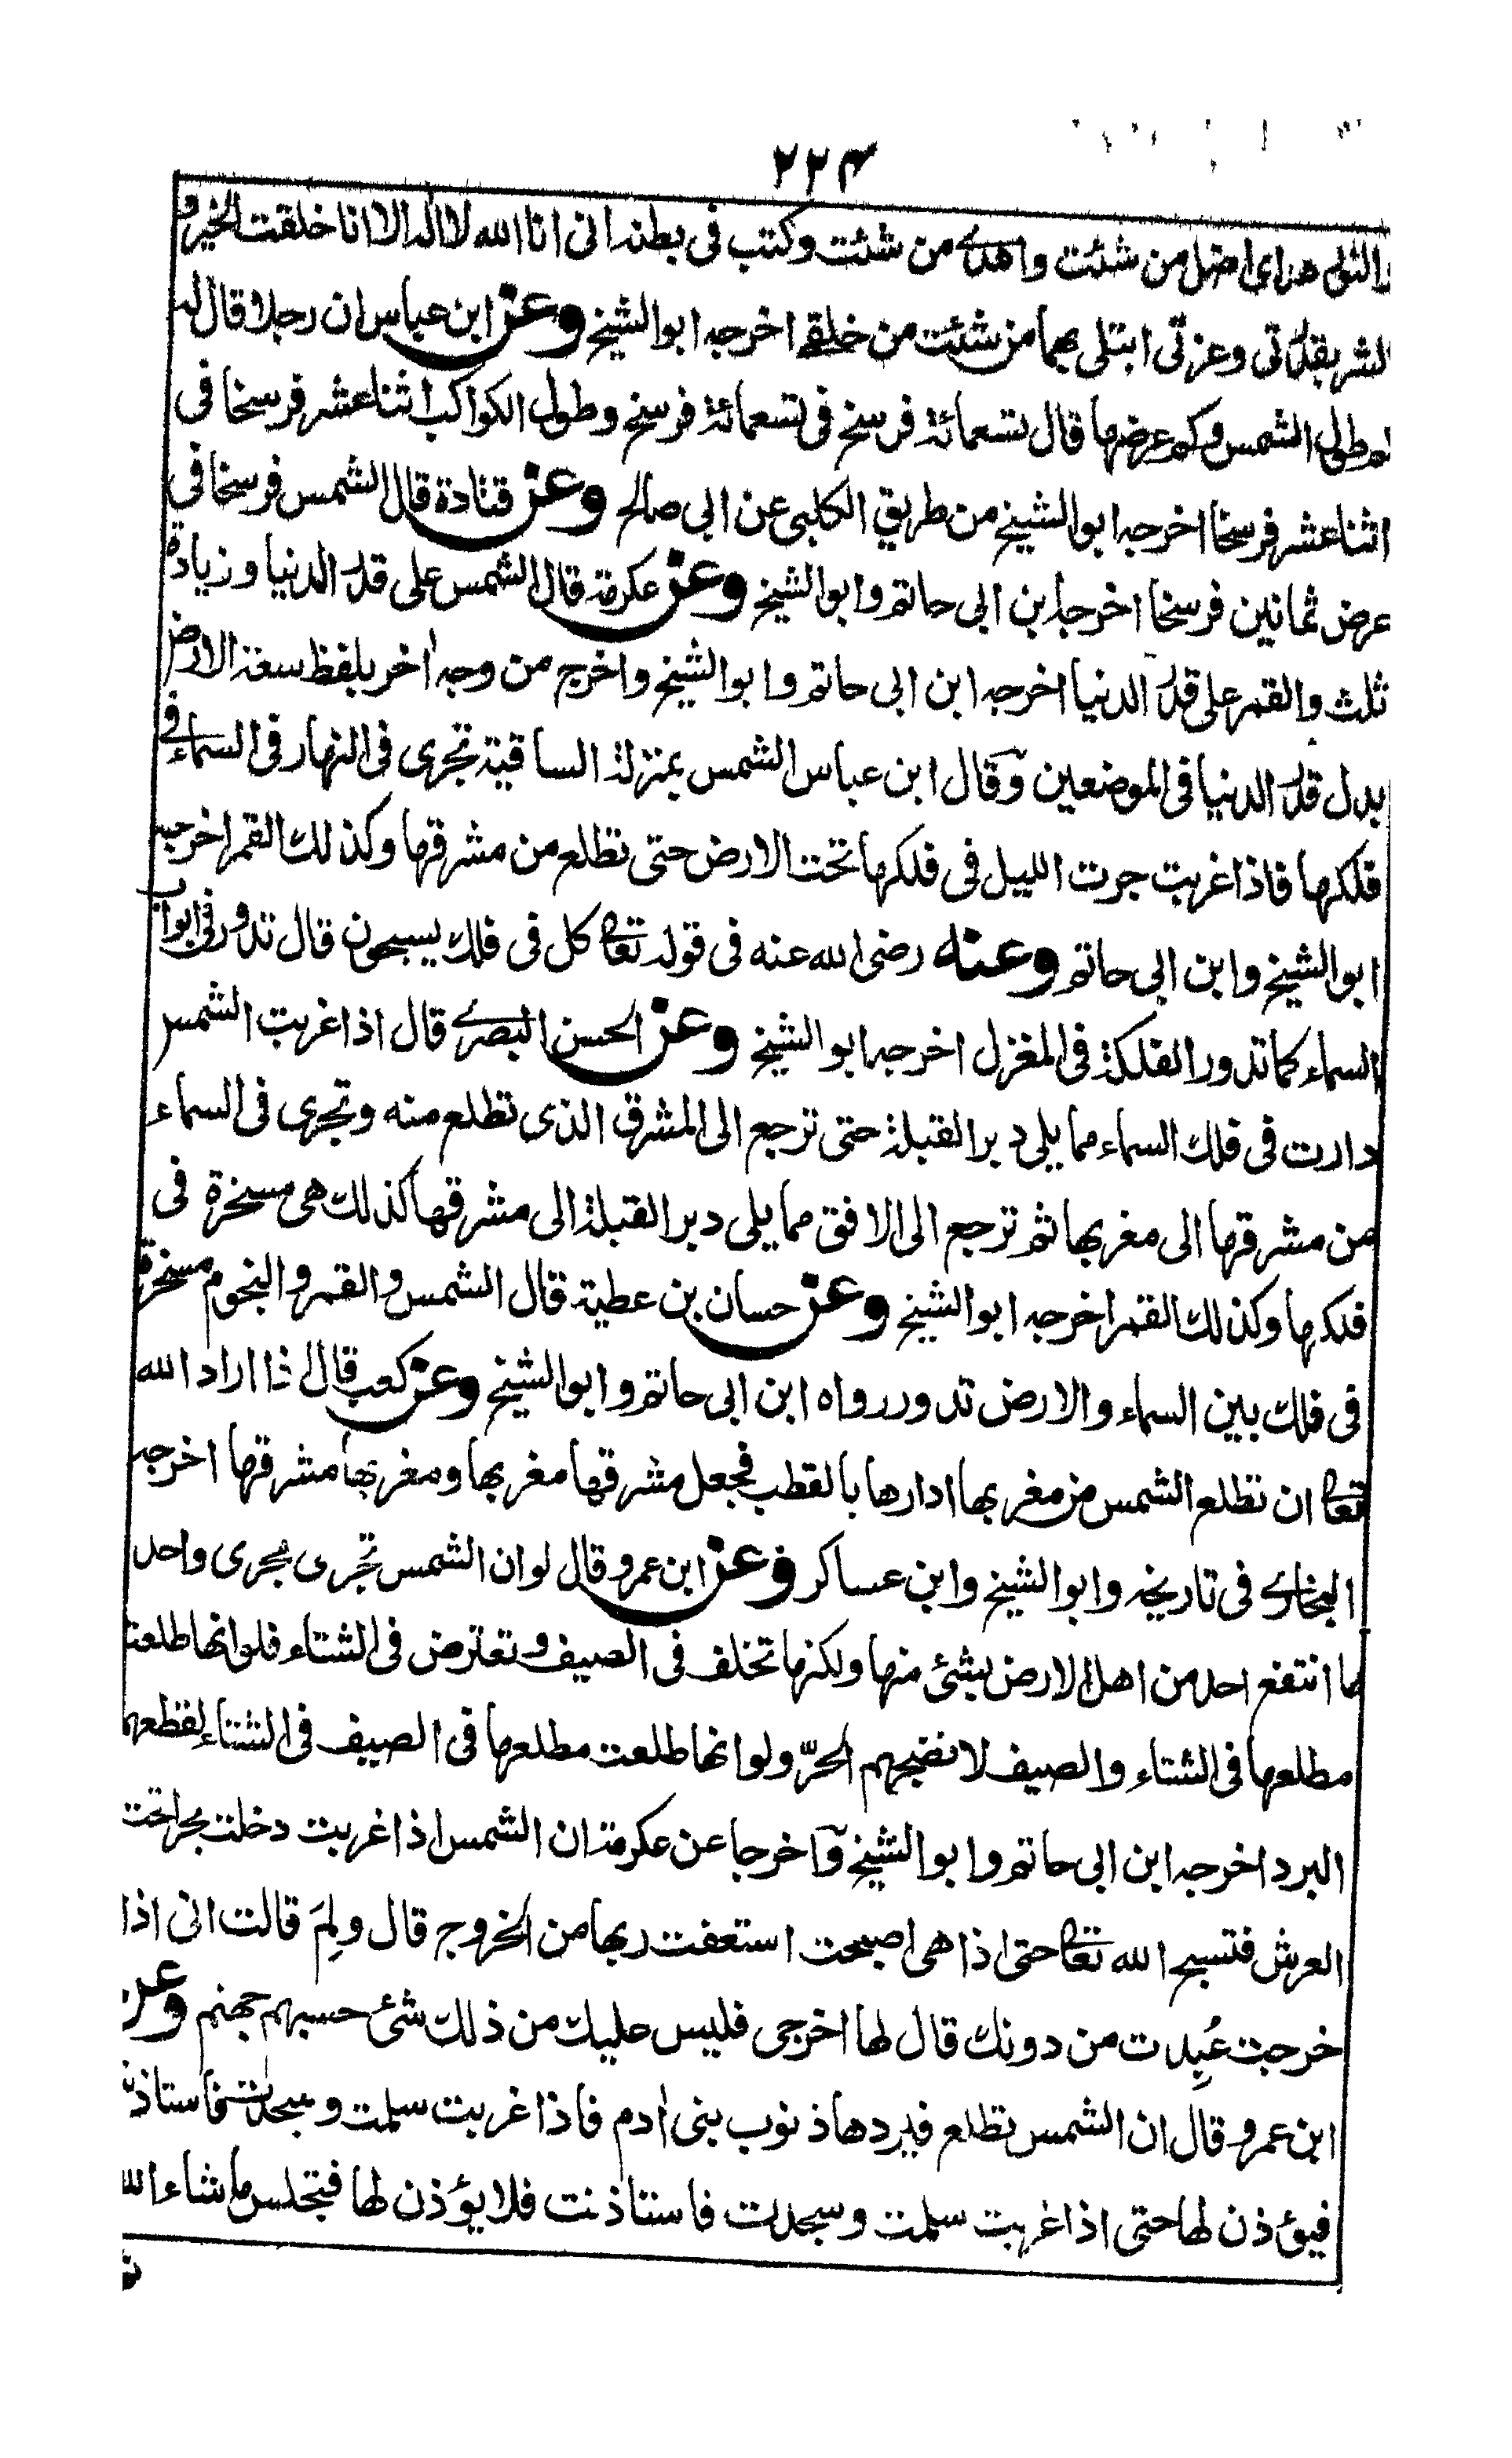 ٢٢٤
هداى اضل من شئت واهدے من شئت وكتب فى بطنه انى انا الله لا اله الا انا خلقت الخير و
الشر بقدرتى وعزتى ابتلى بهما من شئت من خلقے اخرجه ابو الشيخ وعن ابن عباس ان رجلا قال له
كم طول الشمس وكم عرضها قال تسعمائة فرسخ فى تسعمائة فرسخ وطول الكواكب اثنا عشر فرسخا فى
اثنا عشر فرسخا اخرجه ابو الشيخ من طريق الكلبى عن ابى صالح وعن قتادة قال الشمس فرسخا فى
عرض ثمانين فرسخا اخرجه ابن ابى حاتم وابو الشيخ وعن عكرمة قال الشمس على قدر الدنيا وزيادة
ثلث والقمر على قدر الدنيا اخرجه ابن ابى حاتم وابو الشيخ واخرج من وجه اخر بلفظ سعة الارض
بدل قدر الدنيا فى الموضعين وقال ابن عباس الشمس بمنزلة الساقية تجرى فى النهار فى السماء فى
فلكها فاذا غربت جرت الليل فى فلكها تحت الارض حتى تطلع من مشرقها وكذلك القمر اخرجه
ابو الشيخ وابن ابى حاتم وعنه رضى الله عنه فى قوله تعا كل فى فلك يسبحون قال تدور فى ابواب
السماء كما تدور الفلكة فى المغزل اخرجه ابو الشيخ وعن الحسن البصرے قال اذا غربت الشمس
دارت فى فلك السماء مما يلى دبر القبلة حتى ترجع الى المشرق الذى تطلع منه وتجرى فى السماء
من مشرقها الى مغربها ثم ترجع الى الافق مما يلى دبر القبلة الى مشرقها كذلك هى مسخرة فى
فلكها وكذلك القمر اخرجه ابو الشيخ وعن حسان بن عطية قال الشمس والقمر والنجوم مسخرة
فى فلك بين السماء والارض تدور رواه ابن ابى حاتم وابو الشيخ وعن كعب قال ذا اراد الله
تعا ان تطلع الشمس من مغربها ادارها بالقطب فجعل مشرقها مغربها ومغربها مشرقها اخرجه
البخارے فى تاريخه وابو الشيخ وابن عساكر وعن ابن عمرو قال لو ان الشمس تجرى مجرى واحد
ما انتفع احد من اهل الارض بشئ منها ولكنها تخلف فى الصيف وتعترض فى الشتاء فلو انها طلعت
مطلعها فى الشتاء والصيف لانضجهم الحرّ ولو انها طلعت مطلعها فى الصيف فى الشتاء لقطعهم
البرد اخرجه ابن ابى حاتم وابو الشيخ واخرجا عن عكرمة ان الشمس اذا غربت دخلت بحرا تحت
العرش فتسبح الله تعا حتى اذا هى اصبحت استعفت ربها من الخروج قال ولِمَ قالت انى اذا
خرجت عُبِدت من دونك قال لها اخرجى فليس عليك من ذلك شئ حسبهم جهنم وعن
ابن عمرو قال ان الشمس تطلع فيردها ذنوب بنى ادم فاذا غربت سلمت وسجدت فاستاذنت
فيؤذن لها حتى اذا غربت سلمت وسجدت فاستاذنت فلا يؤذن لها فتجلس ما شاء الله